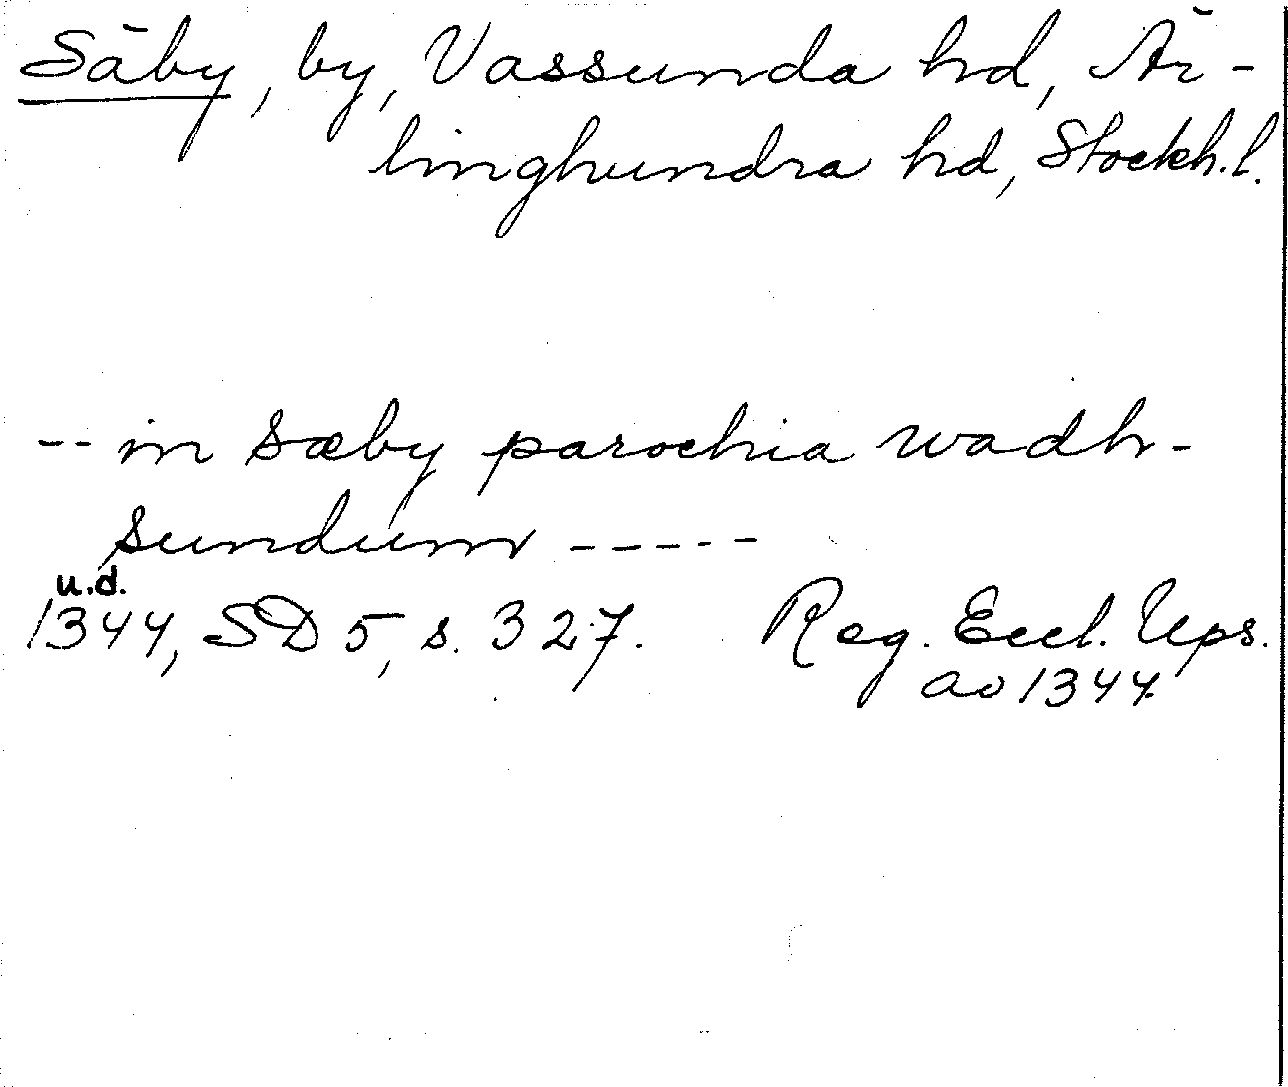 Säby, by, Vassunda hd, Är-
linghundra hd, Stockh.l.
-- in sæby parochia wadh-
sundum -----
u.d.
1344, SD 5, s. 327. Reg. Eccl. Ups.
av 1344.